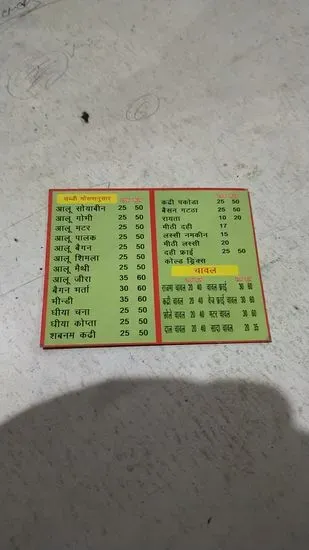 सब्जी मौसमानुसार
आलू सोयाबीन 25 50
आलू गोभी 25 50
आलू मटर 25 50
आलू पालक 25 50
आलू बैगन 25 50
आलू शिमला 25 50
आलू मैथी 25 50
आलू जीरा 35 60
बैगन भर्ता 30 60
भीन्डी 35 60
घीया चना 25 50
घीया कोप्ता 25 50
शबनम कढी 25 50
कढी पकोडा 25 50
बैसन गटठा 25 50
रायता 10 20
मीठी दही 17
लस्सी नमकीन 15
मीठी लस्सी 20
दही फ्राई 25 50
कोल्ड ड्रिंक्स
चावल
राजमा चावल 20 40 चावल फ्राई 30 60
कढ़ी चावल 20 40 वेज फ्राई 30 60
छोले चावल 20 40 मटर चावल 30 60
दाल चावल 20 40 सादा चावल 20 35